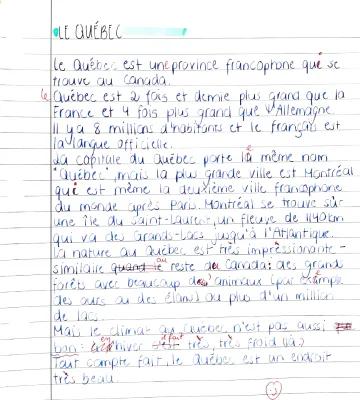 LE QUÉBEC
Le Québec est une province francophone qui se
trouve au Canada.
Le Québec est 2 fois et demie plus grand que la
France et 4 fois plus grand que l'Allemagne.
Il y a 8 millions d'habitants et le français est
la langue officielle.
La capitale du Québec porte le même nom
"Québec", mais la plus grande ville est Montréal
qui est même la deuxième ville francophone
du monde après Paris. Montréal se trouve sur
une île du Saint-Laurent, un fleuve de 1140 km
qui va des Grands-Lacs jusqu'à l'Atlantique.
La nature au Québec est très impressionante -
similaire au reste du Canada: des grands
forêts avec beaucoup d'animaux (par exemple
des ours ou des élans) ou plus d'un million
de lacs.
Mais le climat au Québec n'est pas aussi
bon: en hiver il fait très, très froid là.
Tout compte fait, le Québec est un endroit
très beau.